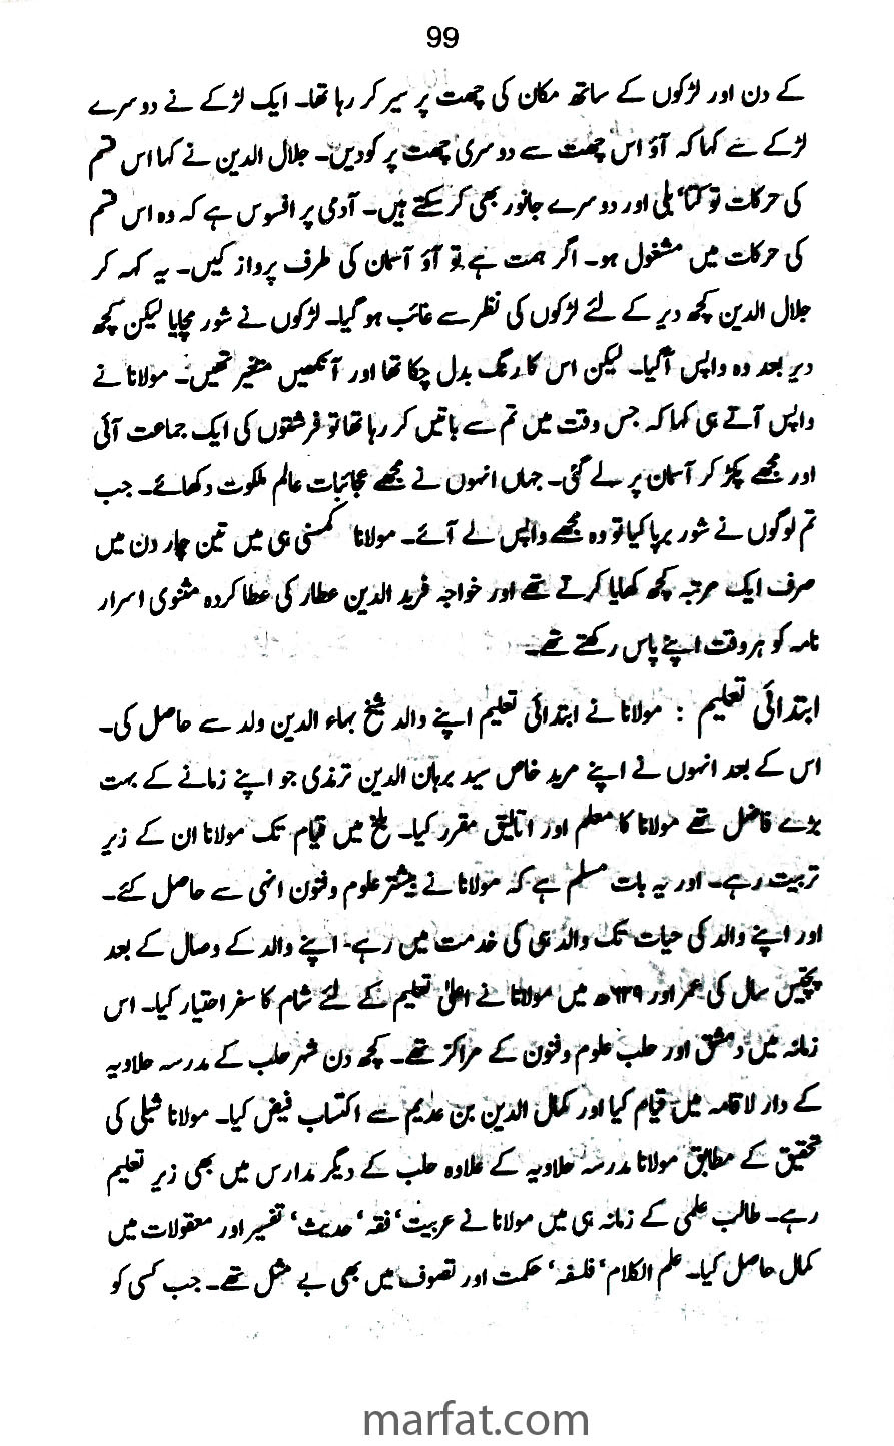 99
کے دن اور لڑکوں کے ساتھ مکان کی چھت پر سیر کر رہا تھا۔ ایک لڑکے نے دوسرے
لڑکے سے کہا کہ آؤ اس چھت سے دوسری چھت پر کودیں۔ جلال الدین نے کہا اس قسم
کی حرکات تو کتا‘ بلی اور دوسرے جانور بھی کر سکتے ہیں۔ آدمی پر افسوس ہے کہ وہ اس قسم
کی حرکات میں مشغول ہو۔ اگر ہمت ہے تو آؤ آسمان کی طرف پرواز کیں۔ یہ کہہ کر
جلال الدین کچھ دیر کے لئے لڑکوں کی نظر سے غائب ہو گیا۔ لڑکوں نے شور مچایا لیکن کچھ
دیر بعد وہ واپس آگیا۔ لیکن اس کا رنگ بدل چکا تھا اور آنکھیں متغیر تھیں۔ مولانا نے
واپس آتے ہی کہا کہ جس وقت میں تم سے باتیں کر رہا تھا تو فرشتوں کی ایک جماعت آئی
اور مجھے پکڑ کر آسمان پر لے گئی۔ جہاں انہوں نے مجھے عجائبات عالم ملکوت دکھائے۔ جب
تم لوگوں نے شور برپا کیا تو وہ مجھے واپس لے آئے۔ مولانا کمسنی ہی میں تین چار دن میں
صرف ایک مرتبہ کچھ کھایا کرتے تھے اور خواجہ فرید الدین عطار کی عطا کردہ مثنوی اسرار
نامہ کو ہر وقت اپنے پاس رکھتے تھے۔
ابتدائی تعلیم : مولانا نے ابتدائی تعلیم اپنے والد شیخ بہاء الدین ولد سے حاصل کی۔
اس کے بعد انہوں نے اپنے مرید خاص سید برہان الدین ترمذی جو اپنے زمانے کے بہت
بڑے فاضل تھے مولانا کا معلم اور اتالیق مقرر کیا۔ بلخ میں قیام تک مولانا ان کے زیر
تربیت رہے۔ اور یہ بات مسلم ہے کہ مولانا نے بیشتر علوم وفنون انہی سے حاصل کئے۔
اور اپنے والد کی حیات تک والد ہی کی خدمت میں رہے۔ اپنے والد کے وصال کے بعد
پچتیس سال کی عمر اور ۶۲۹ھ میں مولانا نے اعلیٰ تعلیم کے لئے شام کا سفر اختیار کیا۔ اس
زمانہ میں دمشق اور حلب علوم وفنون کے مراکز تھے۔ کچھ دن شہر حلب کے مدرسہ حلاویہ
کے دار لاقامہ میں قیام کیا اور کمال الدین بن عدیم سے اکتساب فیض کیا۔ مولانا شبلی کی
تحقیق کے مطابق مولانا مدرسہ حلاویہ کے علاوہ حلب کے دیگر مدارس میں بھی زیر تعلیم
رہے۔ طالب علمی کے زمانہ ہی میں مولانا نے عربیت‘ فقہ‘ حدیث‘ تفسیر اور معقولات میں
کمال حاصل کیا۔ علم الکلام‘ فلسفہ‘ حکمت اور تصوف میں بھی بے مثل تھے۔ جب کسی کو
marfat.com